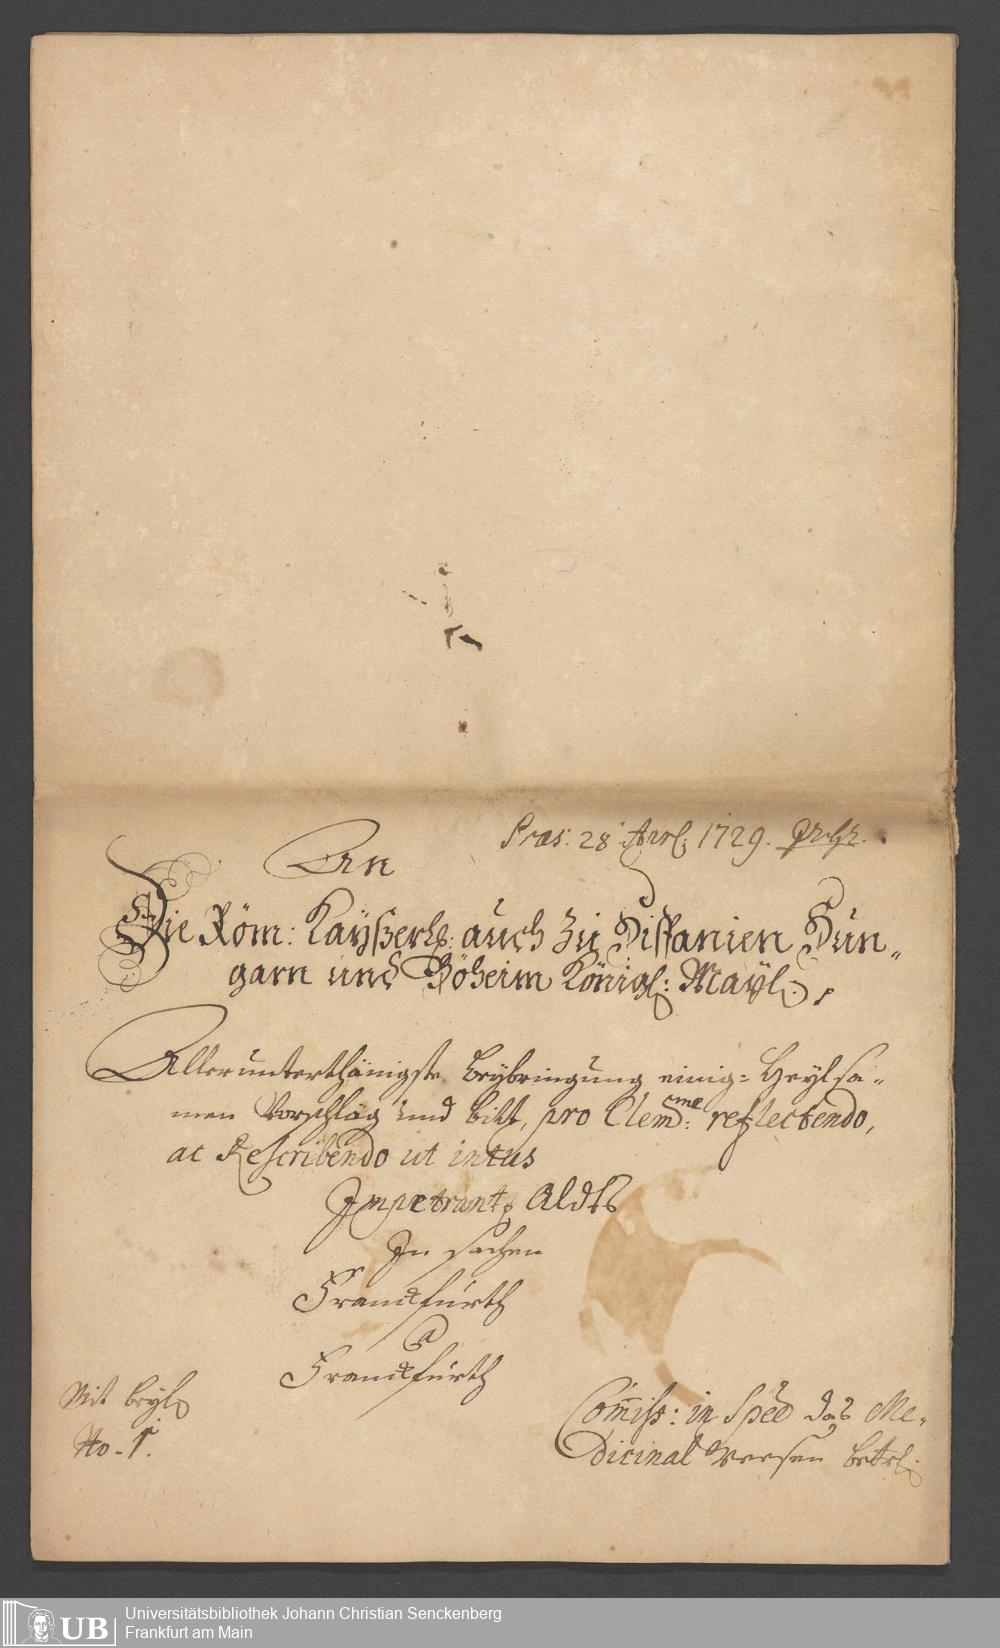 Præs: 28 Aprl: 1729.
An
Die Röm: Kayßerl: auch zu Hispanien Hun„
garn und Böheim Königl: Maytt:
Allerunterthänigste beybringung einig= Heylsa„
men Vorschläg und bitt, pro Clem:me reflectendo,
ac Rescribendo ut intus
Impetrant:
In sachen
Franckfurth
Ca
Franckfurth
Mit beyl:
No. 1.
Commiss: in Spēe das Me„
dicinal weesen betr:
UB
Universitätsbibliothek Johann Christian Senckenberg
Frankfurt am Main